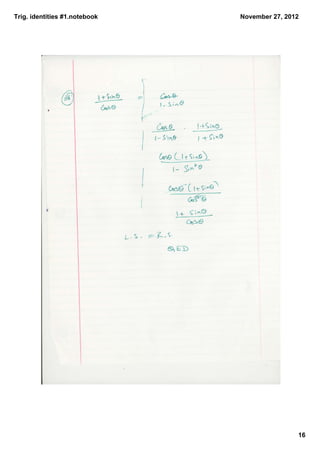 Trig. identities #1.notebook November 27, 2012
(1+Sinθ)/Cosθ = Cosθ/(1-Sinθ)
Cosθ/(1-Sinθ) · (1+Sinθ)/(1+Sinθ)
Cosθ(1+Sinθ)/(1-Sin²θ)
Cosθ(1+Sinθ)/Cos²θ
(1+Sinθ)/Cosθ
L.S. = R.S.
QED
16